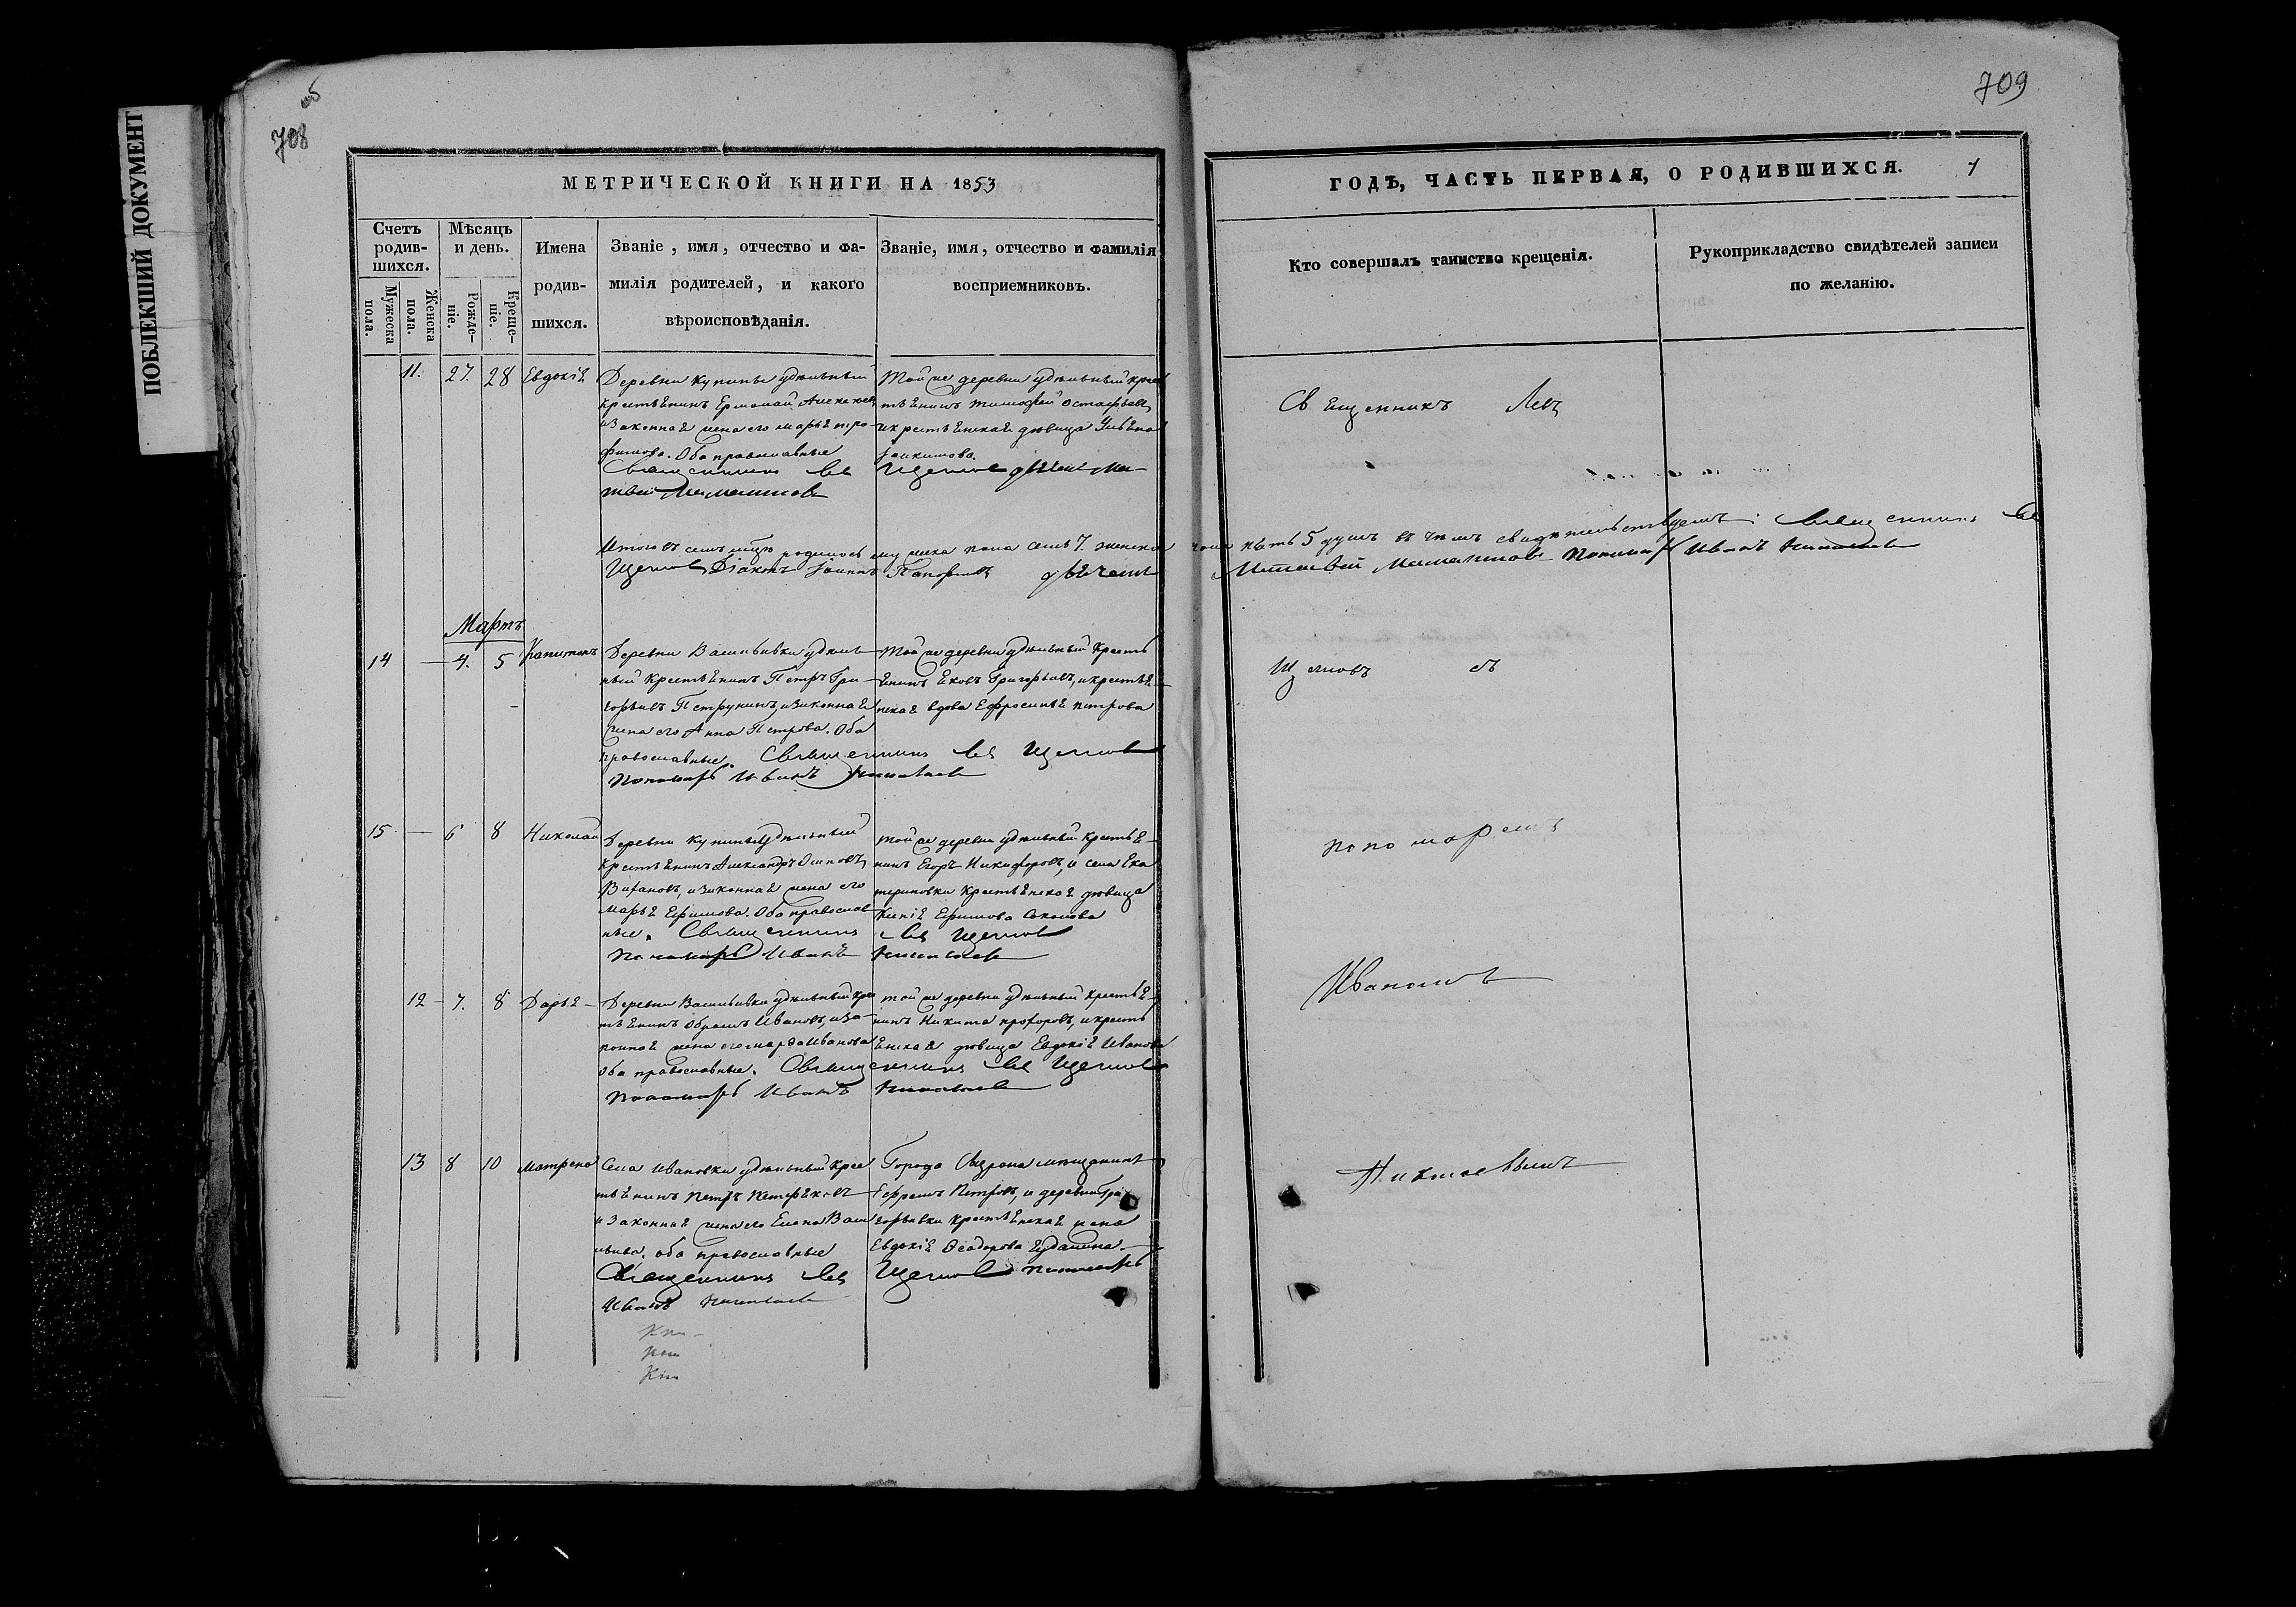 ПОБЛЕКШИЙ ДОКУМЕНТ
об
708
МЕТРИЧЕСКОЙ КНИГИ НА 1853
Счетъ родив-шихся.
Мужеска пола.
Женска пола.
Мѣсяцъ и день.
Рожде-ніе.
Креще-ніе.
Имена родив-шихся.
Званіе, имя, отчество и фа-
милія родителей, и какого
вѣроисповѣданія.
Званіе, имя, отчество и фамилія
восприемниковъ.
11. 27. 28 Евдокія
Деревни Купины удѣльный
крестьянинъ Ермолай Алексеевъ
и законная жена его Марья Тро-
фимова. Оба православные
Священникъ Левъ Щегловъ дьячекъ Ма-
твей Мамантовъ
Той же деревни удѣльный крес
тьянинъ Тимофей Остафьевъ,
и крестьянская дѣвица Ульяна
Іакимова.
Итого въ семъ мцѣ родилось мужеска пола семь 7. женска
Щегловъ Діаконъ Іоаннъ дьячекъ
Мартъ
14 — 4. 5 Капитонъ
Деревни Васильевки удѣль-
ный крестьянинъ Петръ Гри-
горьевъ Петрунинъ, и законная
жена его Анна Петрова. Оба
православные. Священникъ Левъ Щегловъ
Пономарь Иванъ Николаевъ
Той же деревни удѣльный кресть
янинъ Яковъ Григорьевъ, и крестья-
нская вдова Ефросинья Петрова
15. — 6 8 Николай
Деревни Купины удѣльный
крестьянинъ Александръ Осиповъ
и законная жена его
Марья Ефимова. Оба православ
ные. Священникъ Левъ Щегловъ
Пономарь Иванъ Николаевъ
Той же деревни удѣльный крестья-
нинъ Егоръ Никифоровъ, и села Ека
териновки крестьянская дѣвица
Ксенія Ефимова Соколова
12 — 7. 8 Дарья —
Деревни Васильевки удѣльный крес
тьянинъ Абрамъ Ивановъ, и за-
конная жена его Марфа Иванова
Оба православные. Священникъ Левъ Щегловъ
Пономарь Иванъ Николаевъ
Той же деревни удѣльный крестья-
нинъ Никита Прохоровъ, и кресть
янская дѣвица Евдокія Иванова
13 8 10 Матрена
Села Ивановки удѣльный крес
тьянинъ Петръ
и законная жена его Елена Васи
льева. Оба православные
Священникъ Левъ Щегловъ Пономарь
Иванъ Николаевъ
Города Сызрана мещанинъ
Ефремъ Петровъ, и деревни Гри
горьевки крестьянская жена
Евдокія Ѳеодорова
709
ГОДЪ, ЧАСТЬ ПЕРВАЯ, О РОДИВШИХСЯ. 7
Кто совершалъ таинство крещенія.
Рукоприкладство свидѣтелей записи
по желанію.
Священникъ Левъ
пола пять 5 душъ въ чемъ свидѣтельствуемъ: Священникъ Левъ
Матвей Мамантовъ Пономарь Иванъ Николаевъ
Щегловъ съ
пономаремъ
Иваномъ
Николаевымъ